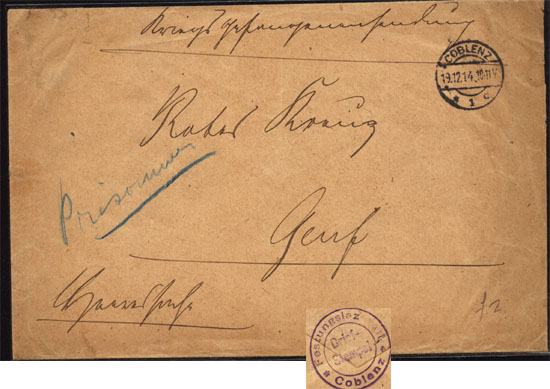 Kriegsgefangenensendung
COBLENZ
19.12.14. 10-11 V.
* 1 c
Rotes Kreuz
Prisonnier
Genf
Heeressache
Festungslaz
Brief-
Stempel
* Coblenz *